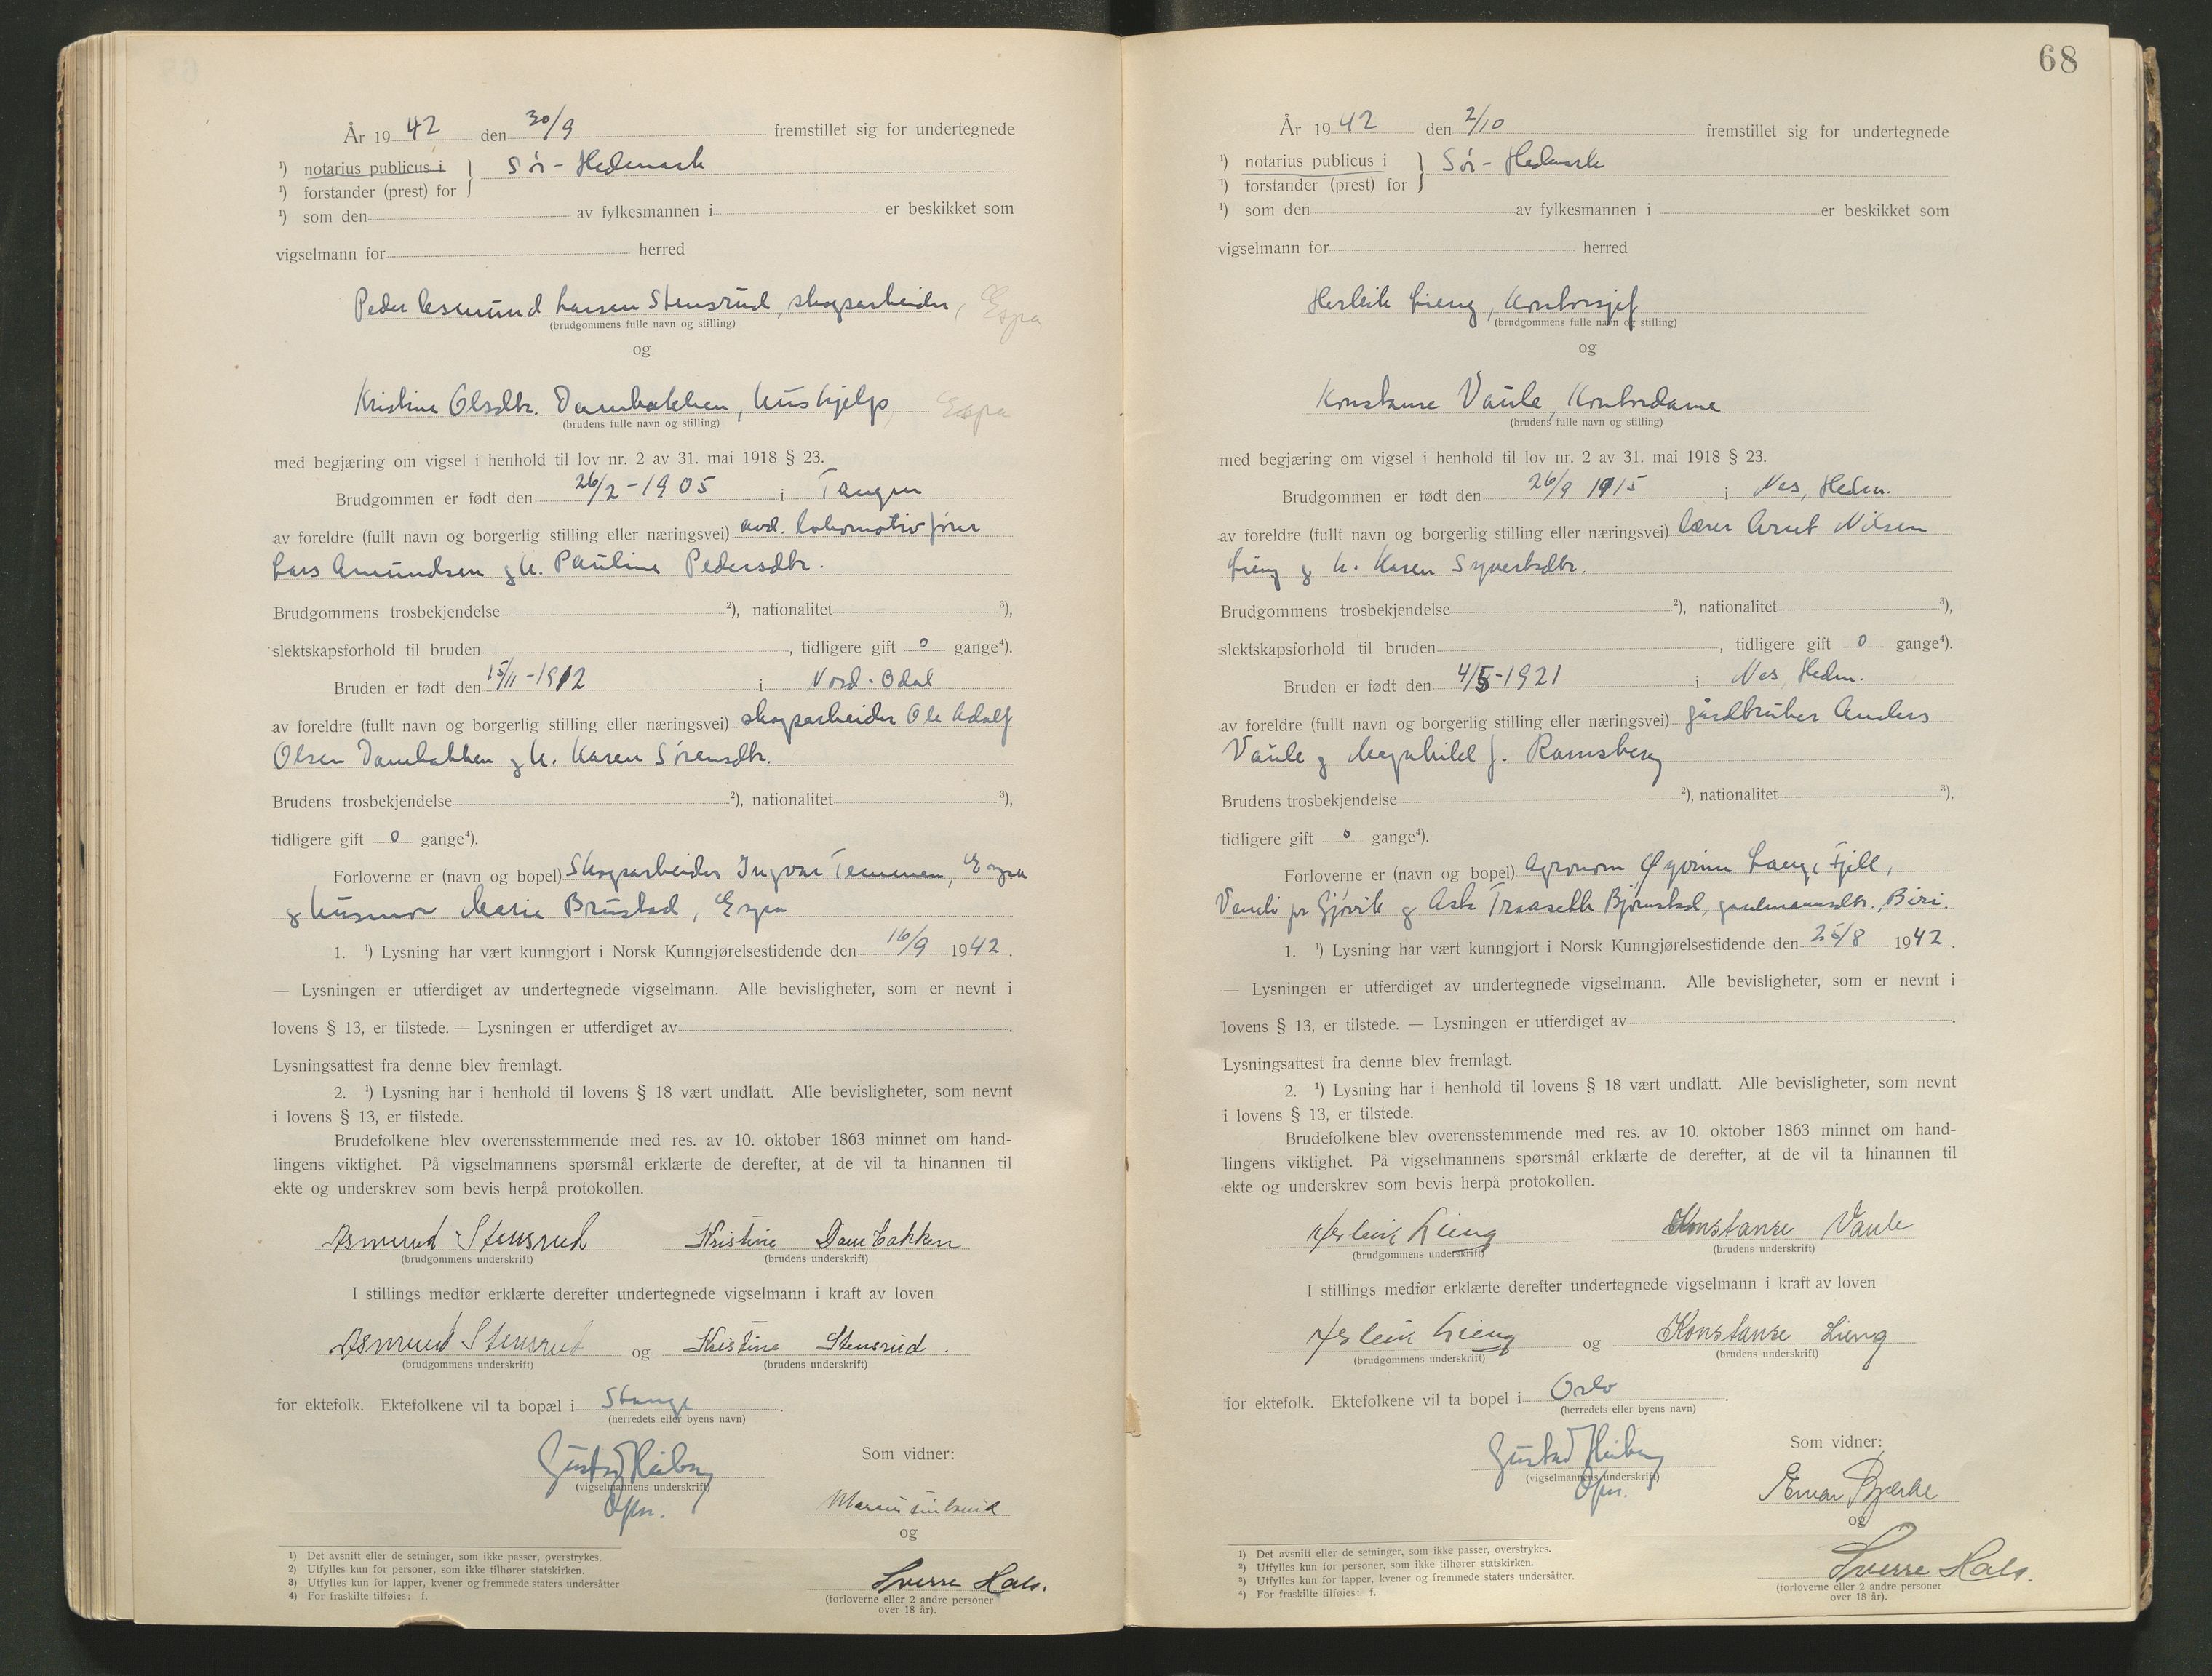 År 1942 den 30/9 fremstillet sig for undertegnede
¹) notarius publicus i } Sør-Hedmark
¹) forstander (prest) for
¹) som den av fylkesmannen i er beskikket som
vigselmann for herred
Peder Asmund Larsen Stensrud, skogsarbeider, Espa
(brudgommens fulle navn og stilling)
og
Kristine Olsdtr. Dambakken, hushjelp, Espa
(brudens fulle navn og stilling)
med begjæring om vigsel i henhold til lov nr. 2 av 31. mai 1918 § 23.
Brudgommen er født den 26/2-1905 i Tangen
av foreldre (fullt navn og borgerlig stilling eller næringsvei) avd. lokomotivfører
Lars Amundsen og h. Pauline Pedersdtr.
Brudgommens trosbekjendelse ²), nationalitet ³),
slektskapsforhold til bruden , tidligere gift 0 gange⁴).
Bruden er født den 15/11-1912 i Nord-Odal
av foreldre (fullt navn og borgerlig stilling eller næringsvei) skogsarbeider Ole Adolf
Olsen Dambakken og h. Karen Sørensdtr.
Brudens trosbekjendelse ²), nationalitet ³),
tidligere gift 0 gange⁴).
Forloverne er (navn og bopel) Skogsarbeider Ingvar Temmen, Espa
og husmor Marie Brustad, Espa
1. ¹) Lysning har vært kunngjort i Norsk Kunngjørelsestidende den 16/9 1942.
— Lysningen er utferdiget av undertegnede vigselmann. Alle bevisligheter, som er nevnt i
lovens § 13, er tilstede. — Lysningen er utferdiget av .
Lysningsattest fra denne blev fremlagt.
2. ¹) Lysning har i henhold til lovens § 18 vært undlatt. Alle bevisligheter, som nevnt
i lovens § 13, er tilstede.
Brudefolkene blev overensstemmende med res. av 10. oktober 1863 minnet om hand-
lingens viktighet. På vigselmannens spørsmål erklærte de derefter, at de vil ta hinannen til
ekte og underskrev som bevis herpå protokollen.
Asmund Stensrud Kristine Dambakken
(brudgommens underskrift) (brudens underskrift)
I stillings medfør erklærte derefter undertegnede vigselmann i kraft av loven
Asmund Stensrud og Kristine Stensrud.
(brudgommens underskrift) (brudens underskrift)
for ektefolk. Ektefolkene vil ta bopæl i Stange.
(herredets eller byens navn)
Gustav Heiberg
(vigselmannens underskrift)
Som vidner:
og
Sverre Hals.
(forloverne eller 2 andre personer
over 18 år).
1) Det avsnitt eller de setninger, som ikke passer, overstrykes.
2) Utfylles kun for personer, som ikke tilhører statskirken.
3) Utfylles kun for lapper, kvener og fremmede staters undersåtter
4) For fraskilte tilføies: f.
68
År 1942 den 2/10 fremstillet sig for undertegnede
¹) notarius publicus i } Sør-Hedmark
¹) forstander (prest) for
¹) som den av fylkesmannen i er beskikket som
vigselmann for herred
Herleik Lieng, kontorsjef
(brudgommens fulle navn og stilling)
og
Konstanse Vaule, kontordame
(brudens fulle navn og stilling)
med begjæring om vigsel i henhold til lov nr. 2 av 31. mai 1918 § 23.
Brudgommen er født den 26/9 1915 i Nes, Hedm.
av foreldre (fullt navn og borgerlig stilling eller næringsvei) lærer Arnt Nilsen
Lieng og h. Karen Syvertsdtr.
Brudgommens trosbekjendelse ²), nationalitet ³),
slektskapsforhold til bruden , tidligere gift 0 gange⁴).
Bruden er født den 4/5-1921 i Nes, Hedm.
av foreldre (fullt navn og borgerlig stilling eller næringsvei) gårdbruker Anders
Vaule og Magnhild f. Ramsberg
Brudens trosbekjendelse ²), nationalitet ³),
tidligere gift 0 gange⁴).
Forloverne er (navn og bopel) Agronom Øyvinn Lang, Fjell,
pr Gjøvik og Bjørnstad, Biri.
1. ¹) Lysning har vært kunngjort i Norsk Kunngjørelsestidende den 25/8 1942.
— Lysningen er utferdiget av undertegnede vigselmann. Alle bevisligheter, som er nevnt i
lovens § 13, er tilstede. — Lysningen er utferdiget av .
Lysningsattest fra denne blev fremlagt.
2. ¹) Lysning har i henhold til lovens § 18 vært undlatt. Alle bevisligheter, som nevnt
i lovens § 13, er tilstede.
Brudefolkene blev overensstemmende med res. av 10. oktober 1863 minnet om hand-
lingens viktighet. På vigselmannens spørsmål erklærte de derefter, at de vil ta hinannen til
ekte og underskrev som bevis herpå protokollen.
Herleik Lieng Konstanse Vaule
(brudgommens underskrift) (brudens underskrift)
I stillings medfør erklærte derefter undertegnede vigselmann i kraft av loven
Herleik Lieng og Konstanse Lieng
(brudgommens underskrift) (brudens underskrift)
for ektefolk. Ektefolkene vil ta bopel i Oslo.
(herredets eller byens navn)
Gustav Heiberg
(vigselmannens underskrift)
Som vidner:
Einar Bjerke
og
Sverre Hals.
(forloverne eller 2 andre personer
over 18 år).
1) Det avsnitt eller de setninger, som ikke passer, overstrykes.
2) Utfylles kun for personer, som ikke tilhører statskirken.
3) Utfylles kun for lapper, kvener og fremmede staters undersåtter.
4) For fraskilte tilføies: f.